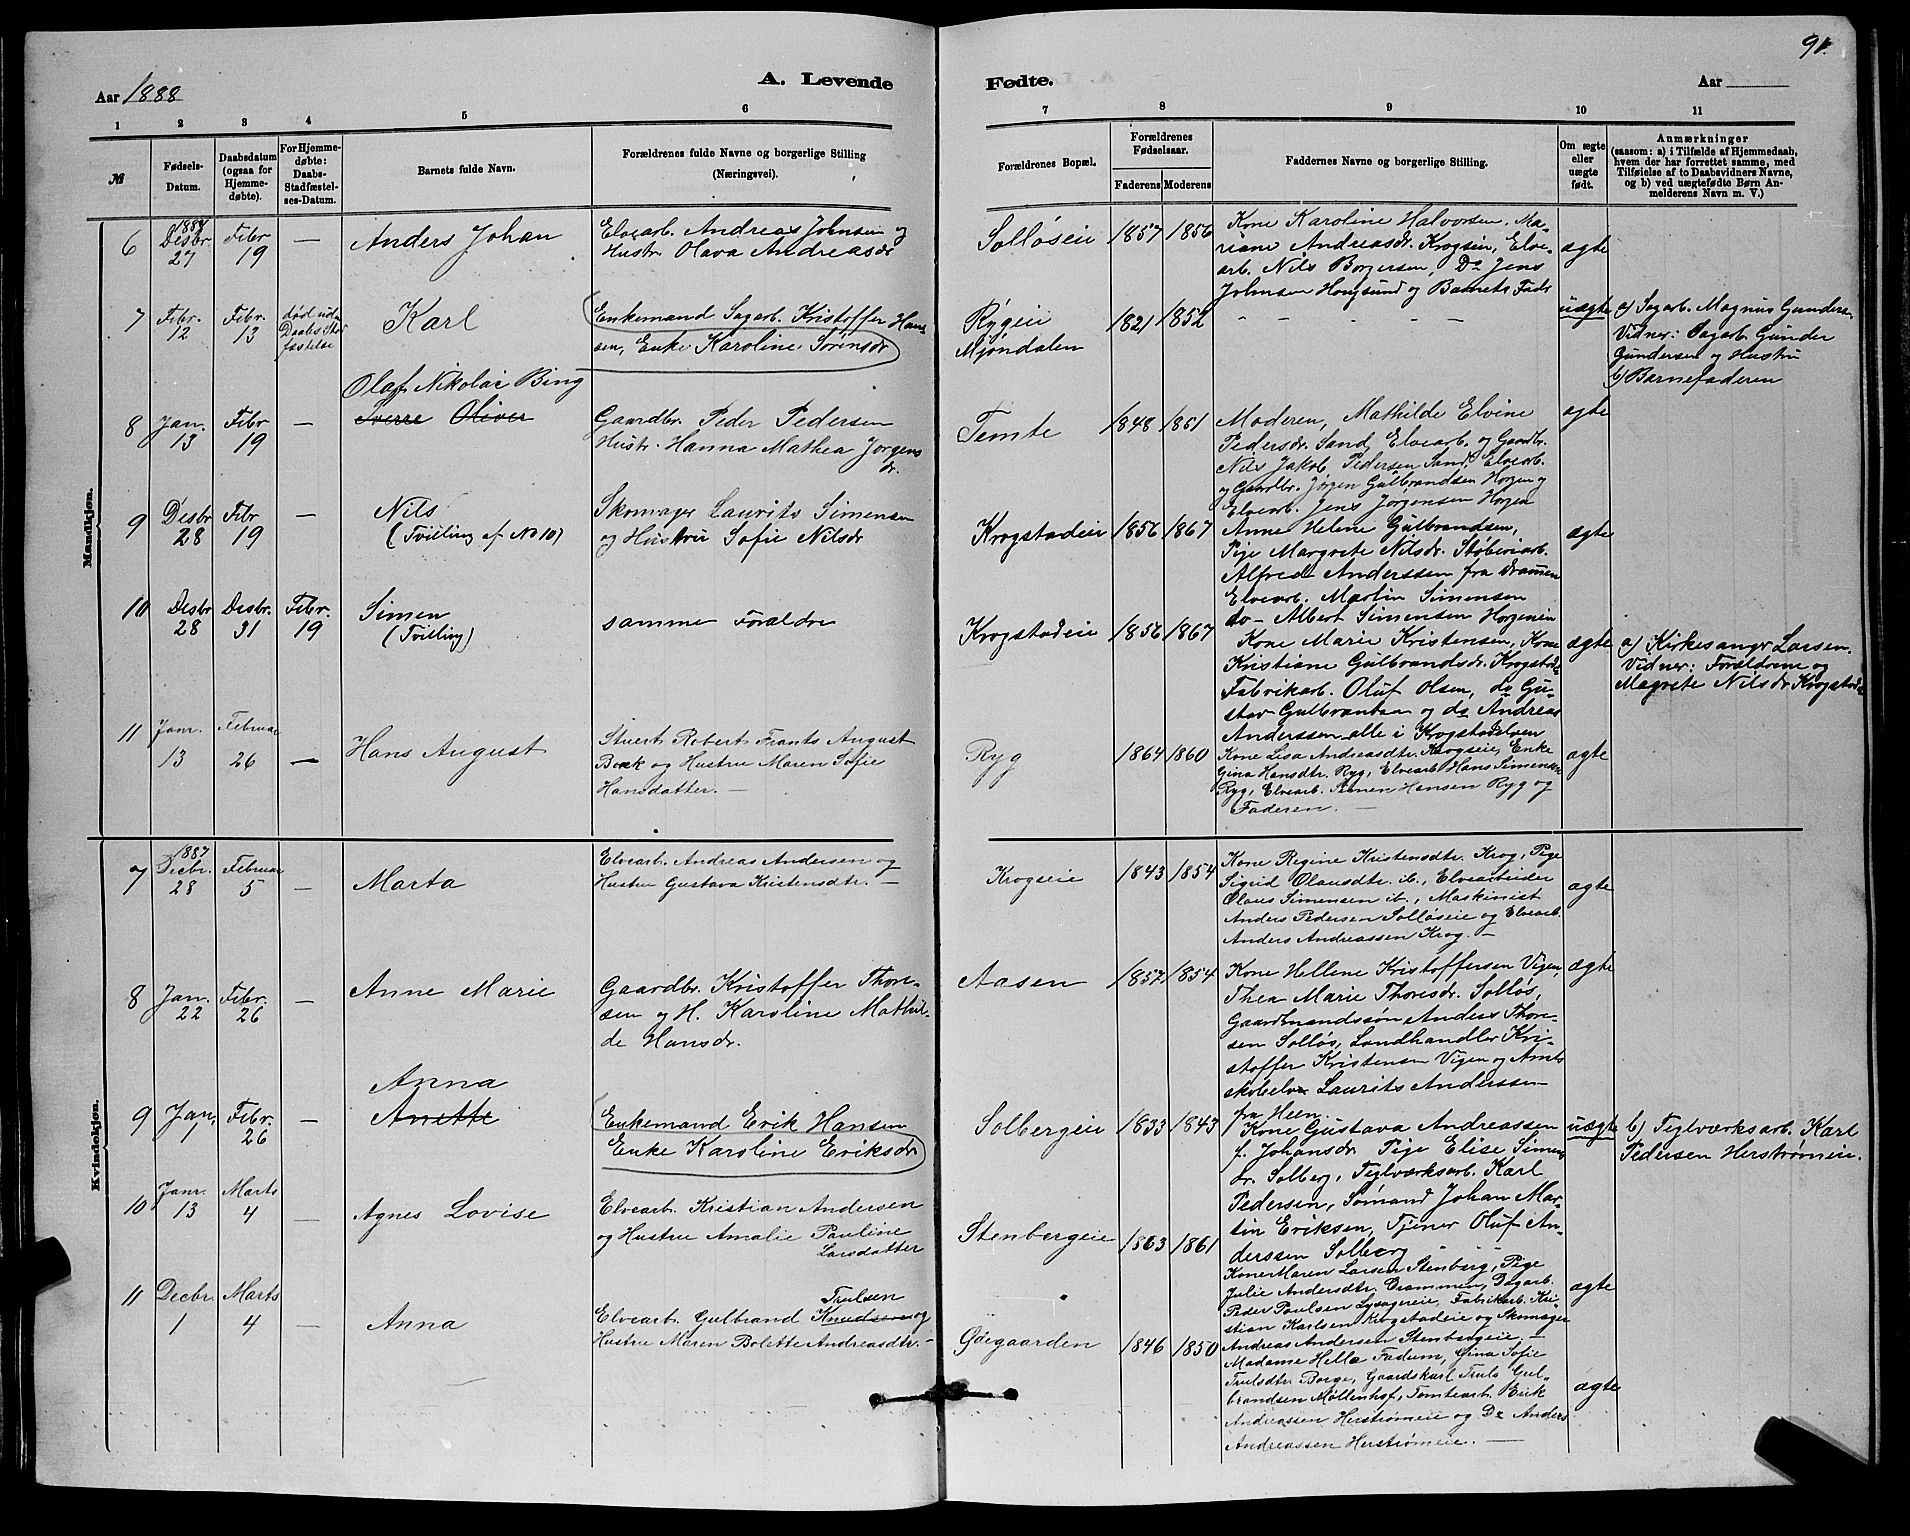 91.
Aar 1888
A. Levende
Fødte.
Aar
1
2
3
4
5
6
7
8
9
10
11
№
Fødsels-
Datum.
Daabsdatum
(ogsaa for
Hjemme-
døbte).
For Hjemme-
døbte:
Daabs-
Stadfæstel-
ses-Datum.
Barnets fulde Navn.
Forældrenes fulde Navne og borgerlige Stilling
(Næringsvei).
Forældrenes Bopæl.
Forældrenes
Fødselsaar.
Faderens
Moderens
Faddernes Navne og borgerlige Stilling.
Om ægte
eller
uægte
født.
Anmærkninger
(saasom: a) i Tilfælde af Hjemmedaab,
hvem der har forrettet samme, med
Tilføielse af to Daabsvidners Navne,
og b) ved uægtefødte Børn An-
melderens Navn m. V.)
Mandkjøn.
6
1887
Desbr.
27
Febr.
19
—
Anders Johan
Elvearb. Andreas Johnsen og
Hustr. Olava Andreasdr
Solløseie
1857
1856
Kone Karoline Halvorsen, Ma-
riane Andreasdr. Krogsein, Elve-
arb. Nils Borgersen, Do Jens
Johnsen Hougsund og Barnets Fadr
ægte
7
Febr.
12
Febr.
13
død uden
Daabs Stad
fæstelse
Karl
Enkemand Sagarb. Kristoffer Han
sen, Enke Karoline Sørensdr
Rygeie
Mjøndalen
1821
1852
– – – – –
uægte
a) Sagarb. Magnus Gundersn.
Vidner: Sagarb. Gunder
Gundersen og Hustru
b) Barnefaderen
8
Jan.
13
Febr
19
—
Olaf Nikolai Bing
Sverre Oliver
Gaardbr. Peder Pedersen
Hustr. Hanna Mathea Jørgens
dr.
Temte
1848
1861
Moderen, Mathilde Elvine
Pedersdr. Sand, Elvearb. og Gaardbr.
Nils Jakob Pedersen Sand, Elvearb.
og Gaardbr. Jørgen Gulbrandsen Horgen og
Elvearb. Jens Jørgensen Horgen
ægte
9
Desbr
28
Febr
19
—
Nils
(Tvilling af No 10)
Skomager Laurits Simensen
og Hustru Sofie Nilsdr
Krogstadeie
1856
1867
Anne Helene Gulbrandsen,
Pige Margrete Nilsdr. Støberiarb.
Alfred Anderssen fra Drammen
Elvearb. Martin Simensen
do- Albert Simensen Horgenein
ægte
10
Desbr
28
Desbr.
31
Febr.
19
Simen
(Tvilling)
samme Forældre
Krogstadeie
1856
1867
Kone Marie Kristensen, Kone
Kristiane Gulbrandsdr. Krogstade
Fabrikarb. Oluf Olsen, do Gu-
stav Gulbrantsen og do Andreas
Anderssen alle i Krogstadelven
ægte
a) Kirkesanger Larsen.
Vidner: Forældrene og
Magrete Nilsdr Krogstade
11
Janr.
13
Februar
26
—
Hans August
Stuert Robert Frants August
Bock og Hustru Maren Sofie
Hansdatter. —
Ryg
1864
1860
Kone Lisa Andreasdtr. Krogseie, Enke
Gina Hansdtr. Ryg, Elvearb Hans Simensen
Ryg, Elvearb. Simen Hansen Ryg og
Faderen. —
ægte
Kvindekjøn.
7
1887
Decbr.
28
Februar
5
—
Marta
Elvearb. Andreas Andersen og
Hustru Gustava Kristensdtr. —
Krogseie
1843
1854
Kone Regine Kristensdtr. Krog, Pige
Sigrid Olausdtr. ib., Elvearbeider
Olaus Simensen ib., Maskinist
Anders Pedersen Solløseie og Elvearb.
Anders Andreassen Krog. —
ægte
8
Jan.
22
Febr.
26
—
Anne Marie
Gaardbr. Kristoffer Thore-
sen og H. Karoline Mathil-
de Hansdr.
Aasen
1857
1854
Kone Hellene Kristoffersen Vigen,
Thea Marie Thoresdr. Solløs,
Gaardmandssøn Anders Thore-
sen Solløs, Landhandler Kri-
stoffer Kristensen Vigen og Amts
skoleelev Laurits Anderssen
fra Heen.
ægte
9
Jan.
1
Febr.
26
—
Anna
Anette
Enkemand Erik Hansen
Enke Karoline Eriksdr
Solbergeie
1833
1843
Kone Gustava Andreassen
f. Johansdr. Pige Elise Simens
dr. Solberg, Teglværksarb. Karl
Pedersen, Sømand Johan Mar-
tin Eriksen, Tjener Oluf An-
derssen Solberg
uægte
b) Teglværksarb. Karl
Pedersen Herstrømeie.
10
Janr.
13
Marts
4
—
Agnes Lovise
Elvearb. Kristian Andersen
og Hustru Amalie Pauline
Larsdatter
Stenbergeie
1863
1861
Kone Maren Larsen Stenberg, Pige
Julie Andersdtr. Drammen, Dagarb.
Peder Paulsen Lysagereie, Fabrikarb. Kri-
stian Karlsen Krogstadeie og Skomager
Andreas Andersen Stenbergeie. —
ægte
11
Decbr.
1
Marts
4
—
Anna
Trulsen
Elvearb. Gulbrand Knudsen og
Hustru Maren Bolette Andreasdtr. —
Ødegaarden
1846
1850
Madame Helle Fadum, Gina Sofie
Trulsdtr Borge, Gaardskarl Truls Gul-
brandsen Møllenhof, Tomtearb. Erik
Andreassen Herstrømeie og Do Anders
Andreassen Herstrømeie. —
ægte